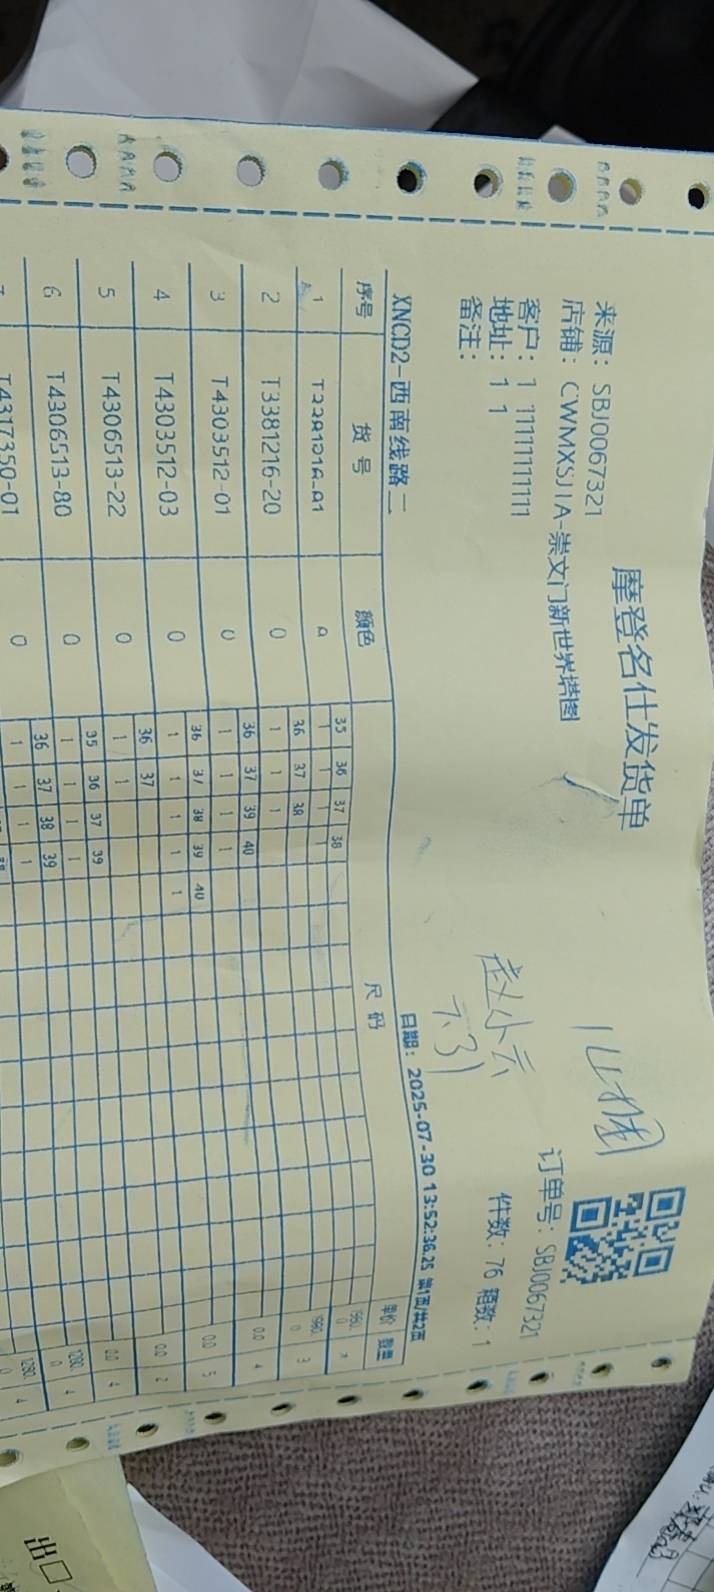 摩登名仕发货单
来源：SBJ0067321
订单号：SBJ0067321
店铺：CWMXSJ1A-崇文门新世界塔图
件数：76 箱数：1
客户：1 11111111111
地址：1 1
备注：
赵小云
7.31
XNCD2-西南线路二
日期：2025-07-30 13:52:36.25 第1页/共2页
序号 货号 颜色 尺码 单价 数量
35 36 37 38
1 0 1 1 1 1
36 37 38
2 T3381216-20 0 1 1 1 1980.0 3
36 37 39 40
3 T4303512-01 0 1 1 1 1 0.0 4
36 37 38 39 40
4 T4303512-03 0 1 1 1 1 1 0.0 5
36 37
5 T4306513-22 0 1 1 0.0 2
35 36 37 39
6 T4306513-80 0 1 1 1 1 0.0 4
36 37 38 39
T4317350-01 0 1 1 1 1 1280.0 4
1280.0 4
出口